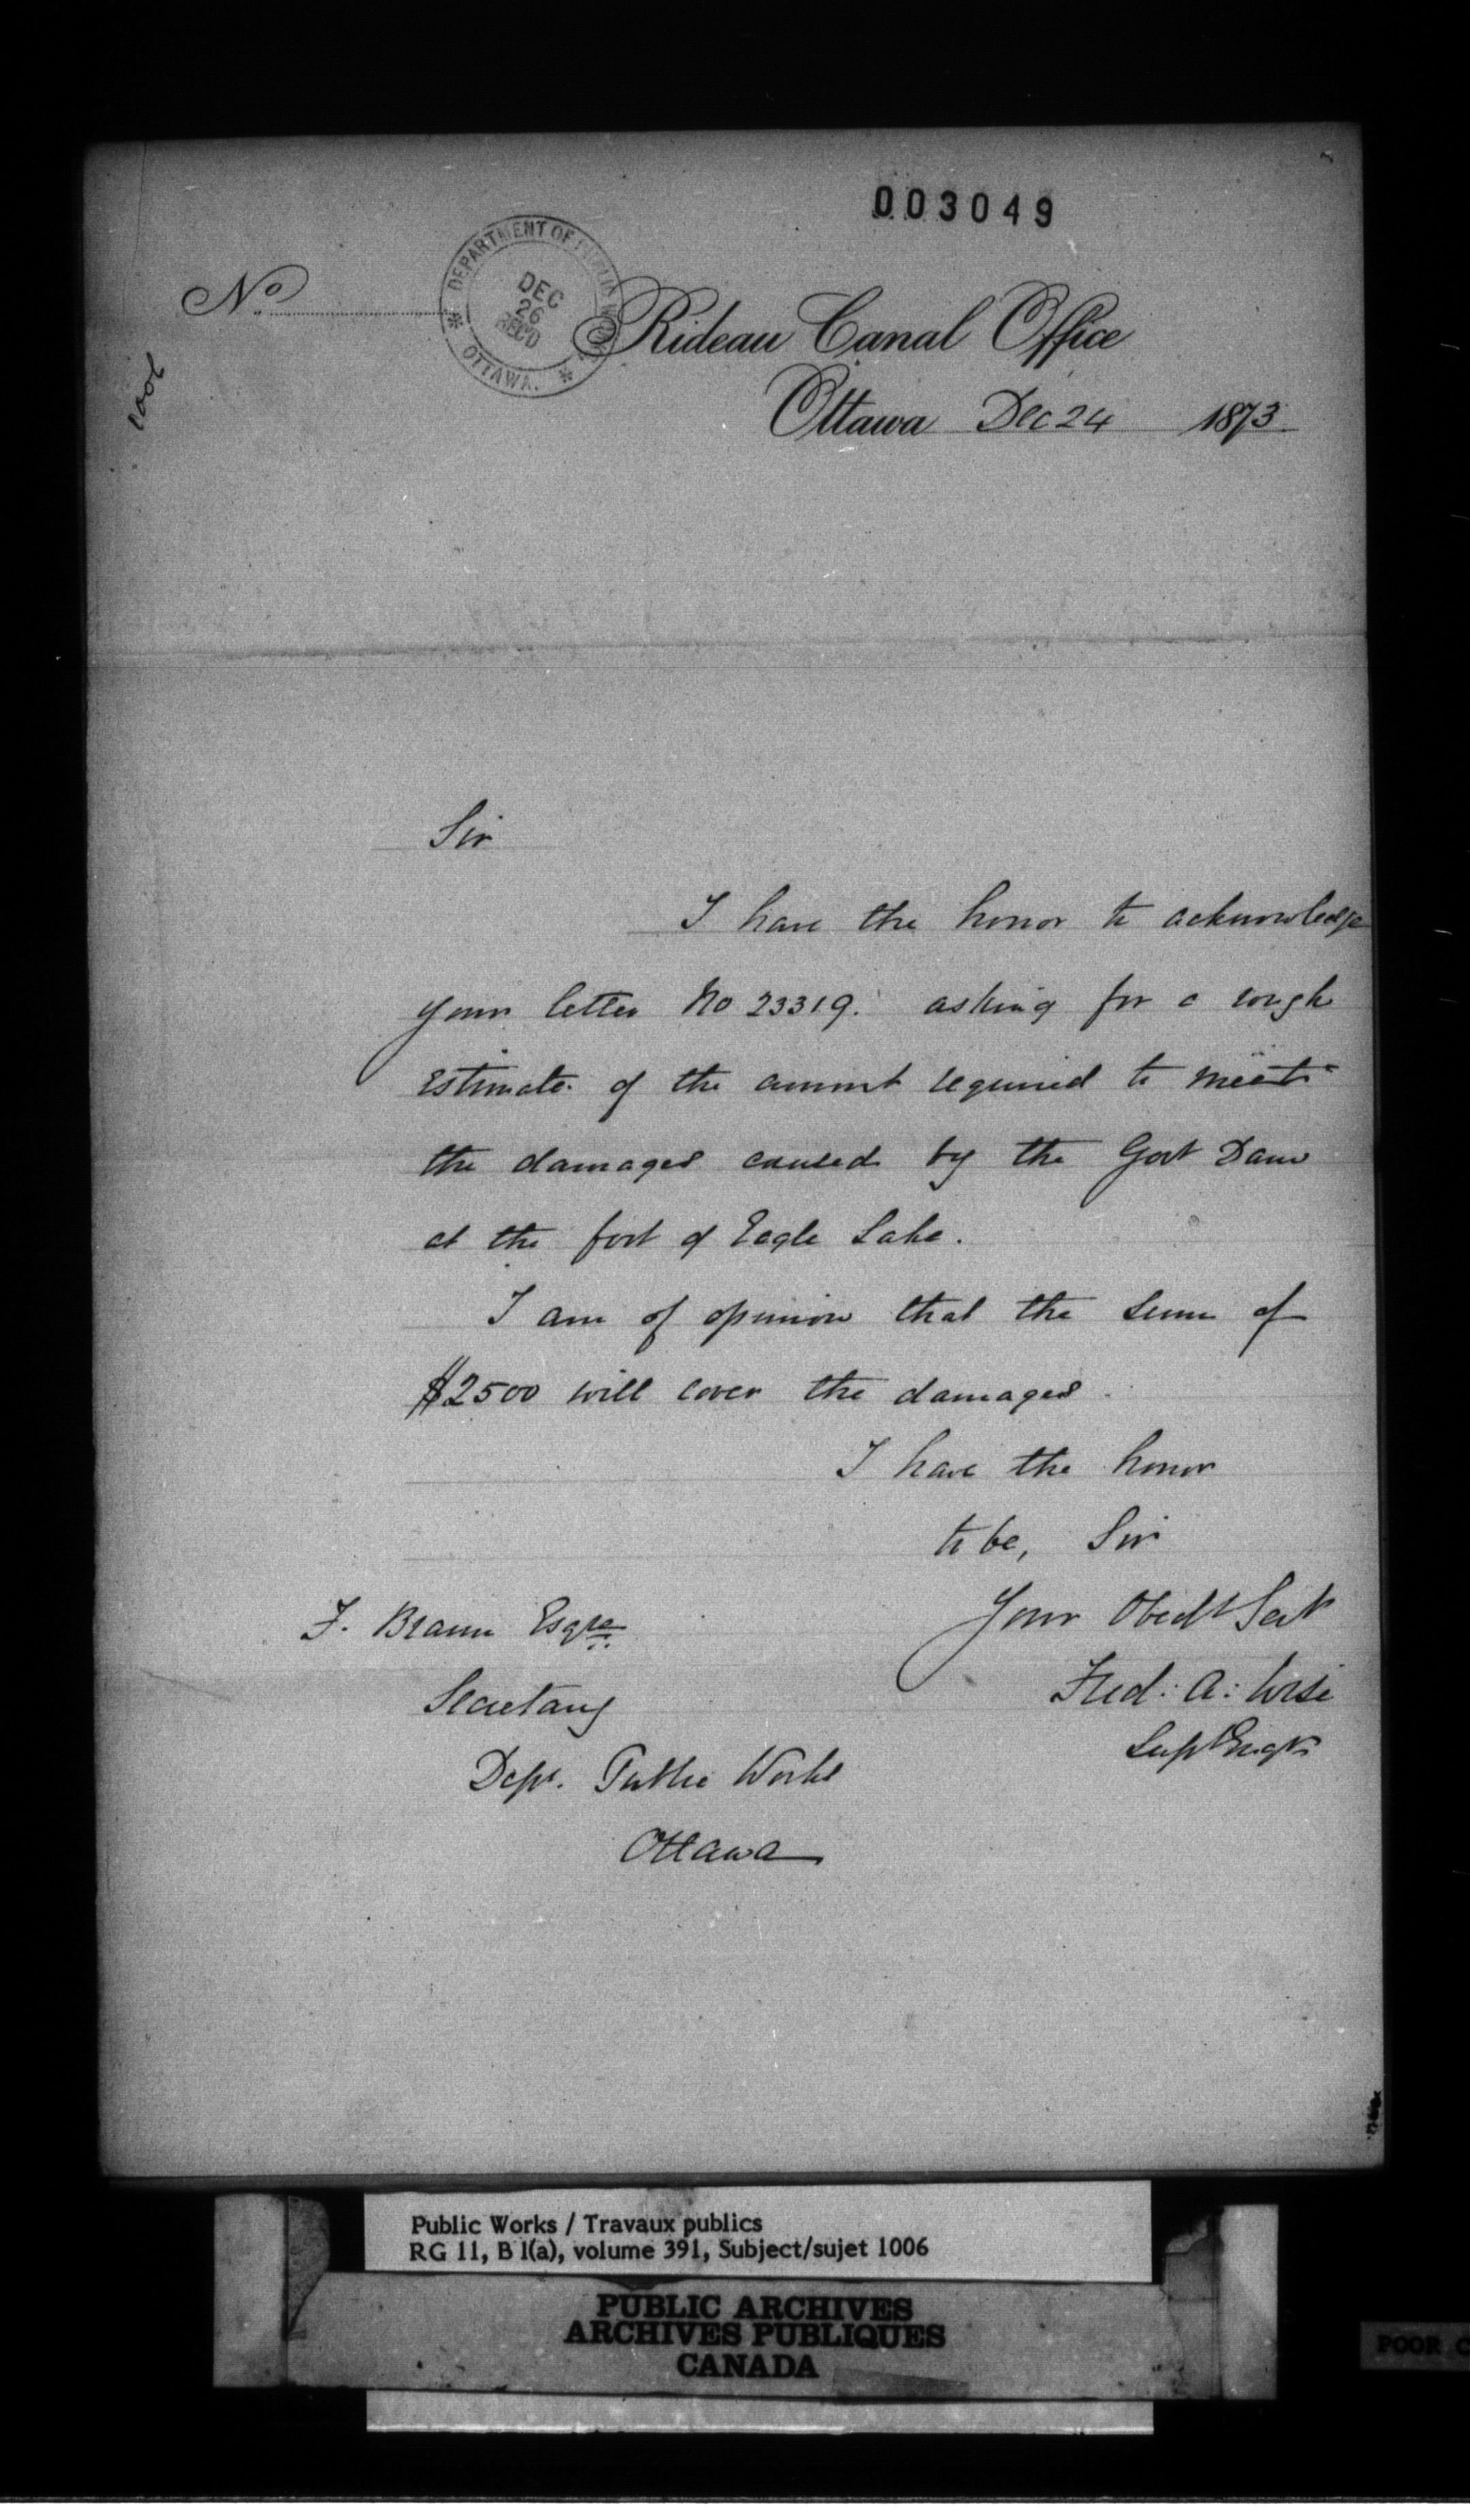 003049
No
DEPARTMENT OF PUBLIC WORKS
DEC
26
REC'D
OTTAWA.
Rideau Canal Office
Ottawa Dec 24 1873
1006
Sir
I have the honor to acknowledge
your letter No 23319. asking for a rough
Estimate of the amount required to meet
the damages caused by the Govt Dam
at the foot of Eagle Lake.
I am of opinion that the sum of
$2500 will cover the damages.
I have the honor
to be, Sir
Your Obedt Sert
Fred: A: Wise
Supt Engr
F. Braun Esqre
Secretary
Dept. Public Works
Ottawa
Public Works / Travaux publics
RG 11, B 1(a), volume 391, Subject/sujet 1006
PUBLIC ARCHIVES
ARCHIVES PUBLIQUES
CANADA
POOR C